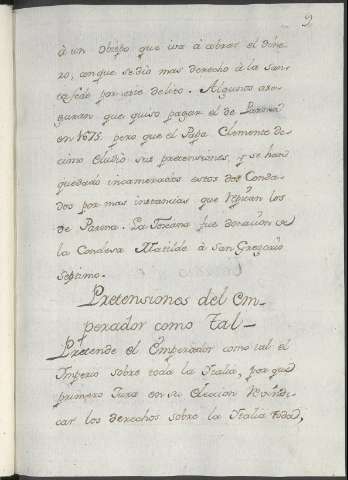 9
à un obispo que iva à cobrar el dine-
ro, conque se dio mas derecho à la San-
ta sede por este delito. Algunos ase-
guran que quiso pagar el de Parma
en 1675. pero que el Papa Clemente de-
cimo eludió sus pretensiones, y se han
quedado incamerados estos dos Conda-
dos por mas instancias que repitan los
de Parma. La Toscana fue donacion de
la Condesa Matilde à San Gregorio
septimo.
Pretensiones del em-
perador como tal
Pretende el Emperador como tal el
Imperio sobre toda la Italia, por que
primero Jura en su eleccion Reindi-
car los derechos sobre la Italia toda,